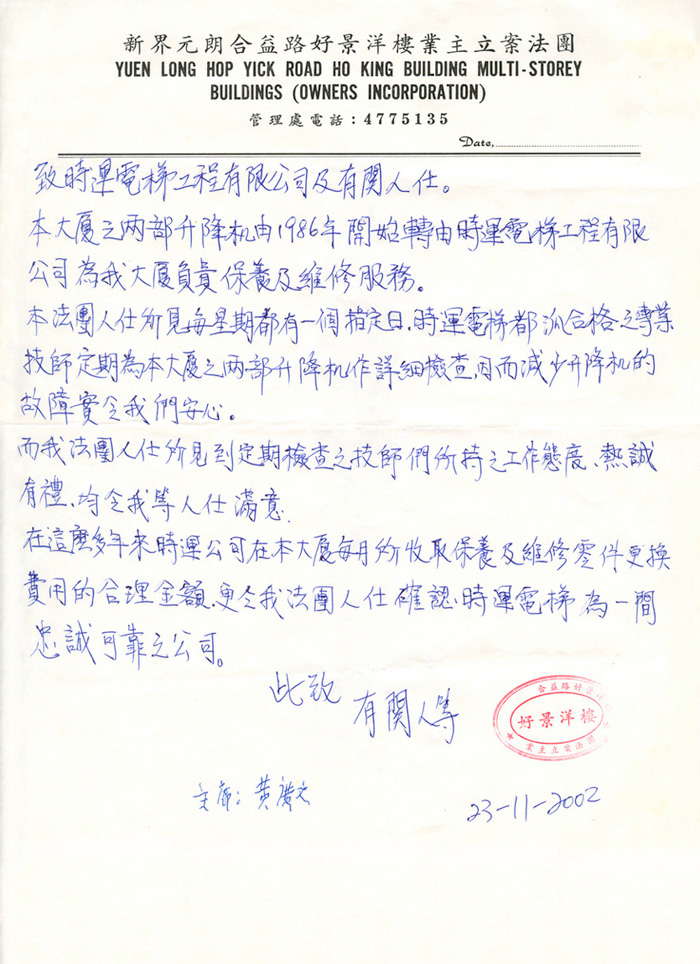 新界元朗合益路好景洋樓業主立案法團
YUEN LONG HOP YICK ROAD HO KING BUILDING MULTI-STOREY
BUILDINGS (OWNERS INCORPORATION)
管理處電話：4775135
Date,
致時運電梯工程有限公司及有関人仕。
本大廈之两部升降机由1986年開始轉由時運電梯工程有限
公司為我大廈負責保養及維修服務。
本法團人仕所見每星期都有一個指定日，時運電梯都派合格之專業
技師定期為本大廈之两部升降机作詳細檢查因而減少升降机的
故障實令我們安心。
而我法團人仕所見到定期檢查之技師們所持之工作態度、熱誠
有禮、均令我等人仕滿意.
在這麼多年來時運公司在本大廈每月所收取保養及維修零件更換
費用的合理金額、更令我法團人仕確認、時運電梯為一間
忠誠可靠之公司。
此致
有関人等
合益路好景洋樓
好景洋樓
業主立案法團
主席：黄
23-11-2002